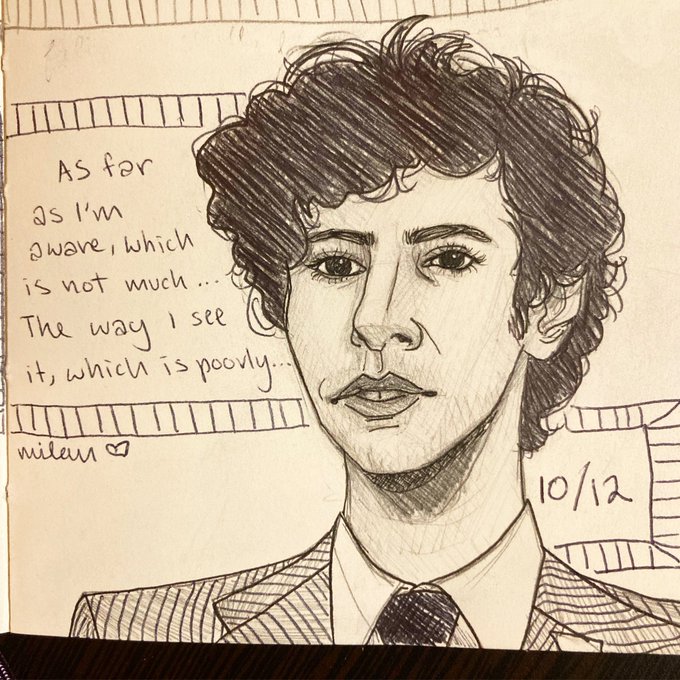 As far
as I'm
aware, which
is not much...
The way I see
it, which is poorly...
milan ♡
10/12